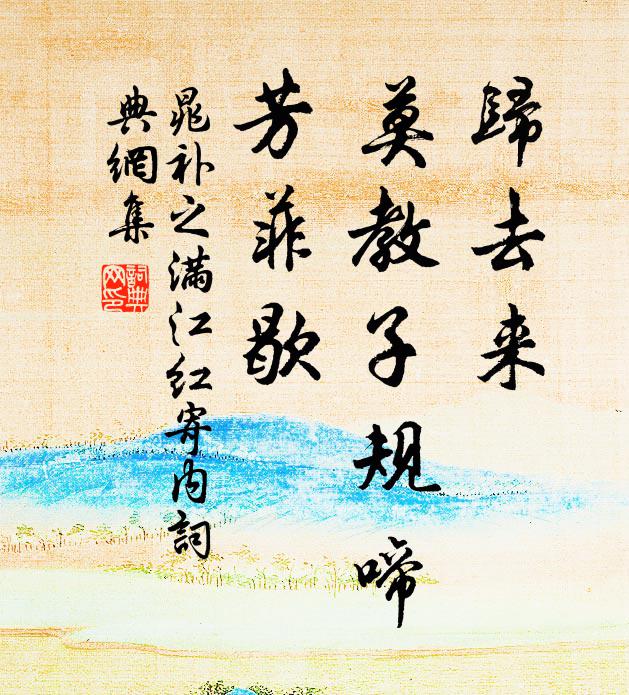 歸去来
莫教子規啼
芳菲歇
晁补之满江红寄内詞
典網集
詞典网印